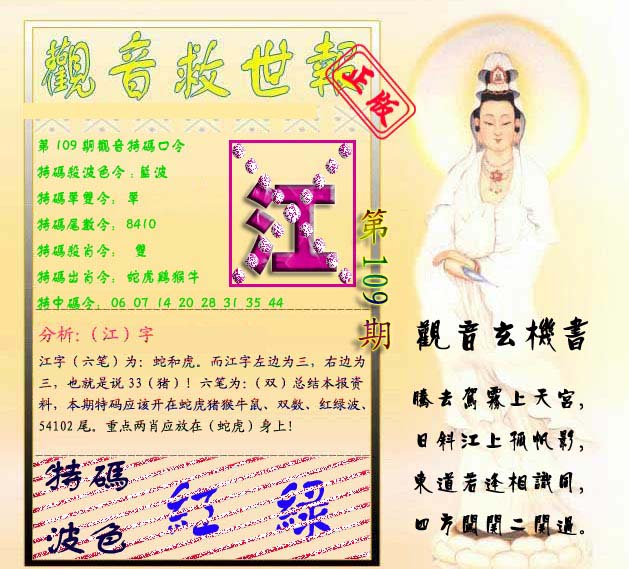 觀音救世報
正版
第109期觀音特碼口令
特碼殺波色令:藍波
特碼單雙令: 單
特碼尾數令: 8410
特碼殺肖令: 雙
特碼出肖令: 蛇虎鷄猴牛
特中碼令: 06 07 14 20 28 31 35 44
江
第109期
分析:（江）字
江字（六笔）为：蛇和虎。而江字左边为三，右边为
三，也就是说33（猪）！六笔为：（双）总结本报资
料，本期特码应该开在蛇虎猪猴牛鼠、双数、红绿波、
54102尾。重点两肖应放在（蛇虎）身上！
特碼
波色
紅 綠
觀音玄機書
騰去駕霧上天宮,
日斜江上孤帆影,
東道若逢相識問,
四方關閉二開過。